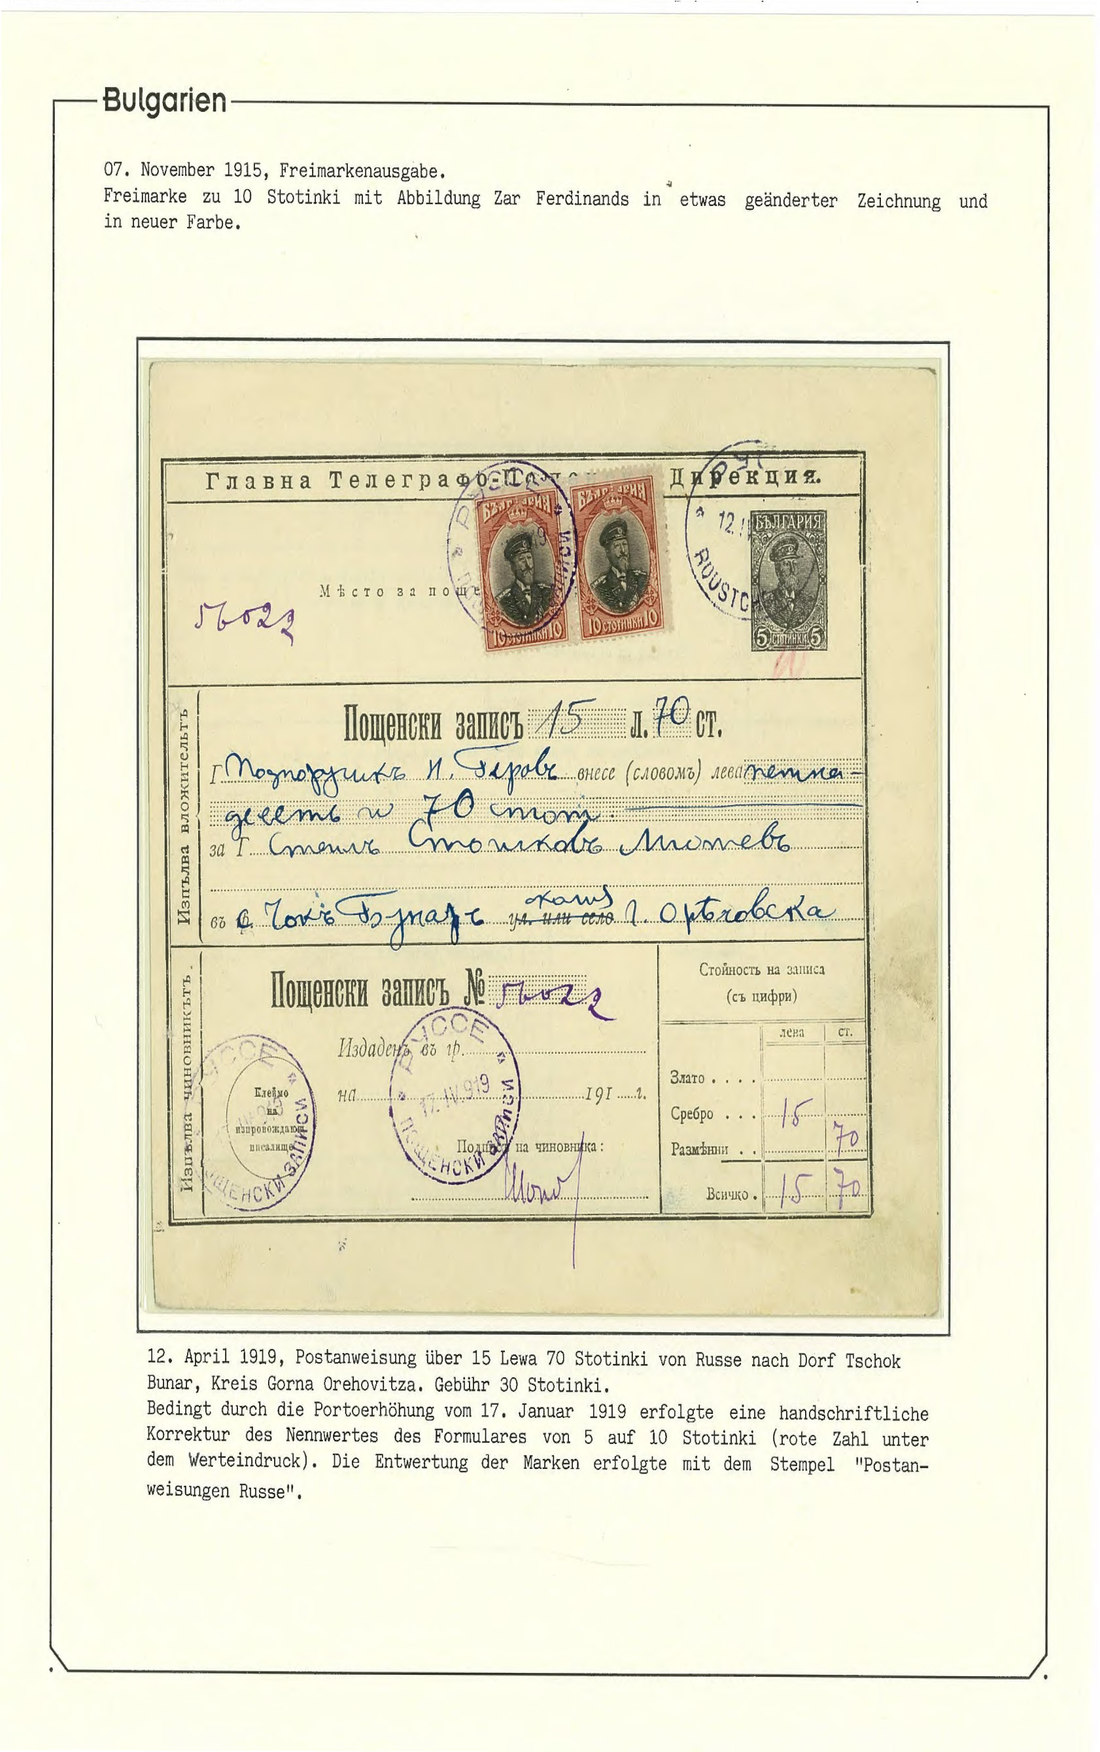 Bulgarien
07. November 1915, Freimarkenausgabe.
Freimarke zu 10 Stotinki mit Abbildung Zar Ferdinands in etwas geänderter Zeichnung und
in neuer Farbe.
Главна Телеграфо-По Дирекция.
РУССЕ
БЪЛГАРИЯ
БЪЛГАРИЯ
12.
БЪЛГАРИЯ
ROUSTC
Мѣсто за поще
56022
10 СТОТИНКИ 10
10 СТОТИНКИ 10
5 СТОТИНКИ 5
10
Изпълва вложительтъ
Пощенски записъ 15 л. 70 ст.
Г Подпоручикъ Н. Геровъ внесе (словомъ) лева петна-
десеть и 70 стот.
за Г. Стоиковъ
въ с. Чокъ Бунаръ околия ул. или село Г. Орѣховска
Изпълва чиновникътъ.
Пощенски записъ № 56022
Издаденъ въ гр.
на 191 г.
РУССЕ
12.IV.919
ПОЩЕНСКИ ЗАПИСИ
Подпис на чиновника:
РУССЕ
Клеймо
на
изпровождаю
писалище
ПОЩЕНСКИ ЗАПИСИ
Стойность на записа
(съ цифри)
лева ст.
Злато
Сребро 15
Размѣнни 70
Всичко 15 70
12. April 1919, Postanweisung über 15 Lewa 70 Stotinki von Russe nach Dorf Tschok
Bunar, Kreis Gorna Orehovitza. Gebühr 30 Stotinki.
Bedingt durch die Portoerhöhung vom 17. Januar 1919 erfolgte eine handschriftliche
Korrektur des Nennwertes des Formulares von 5 auf 10 Stotinki (rote Zahl unter
dem Werteindruck). Die Entwertung der Marken erfolgte mit dem Stempel "Postan-
weisungen Russe".